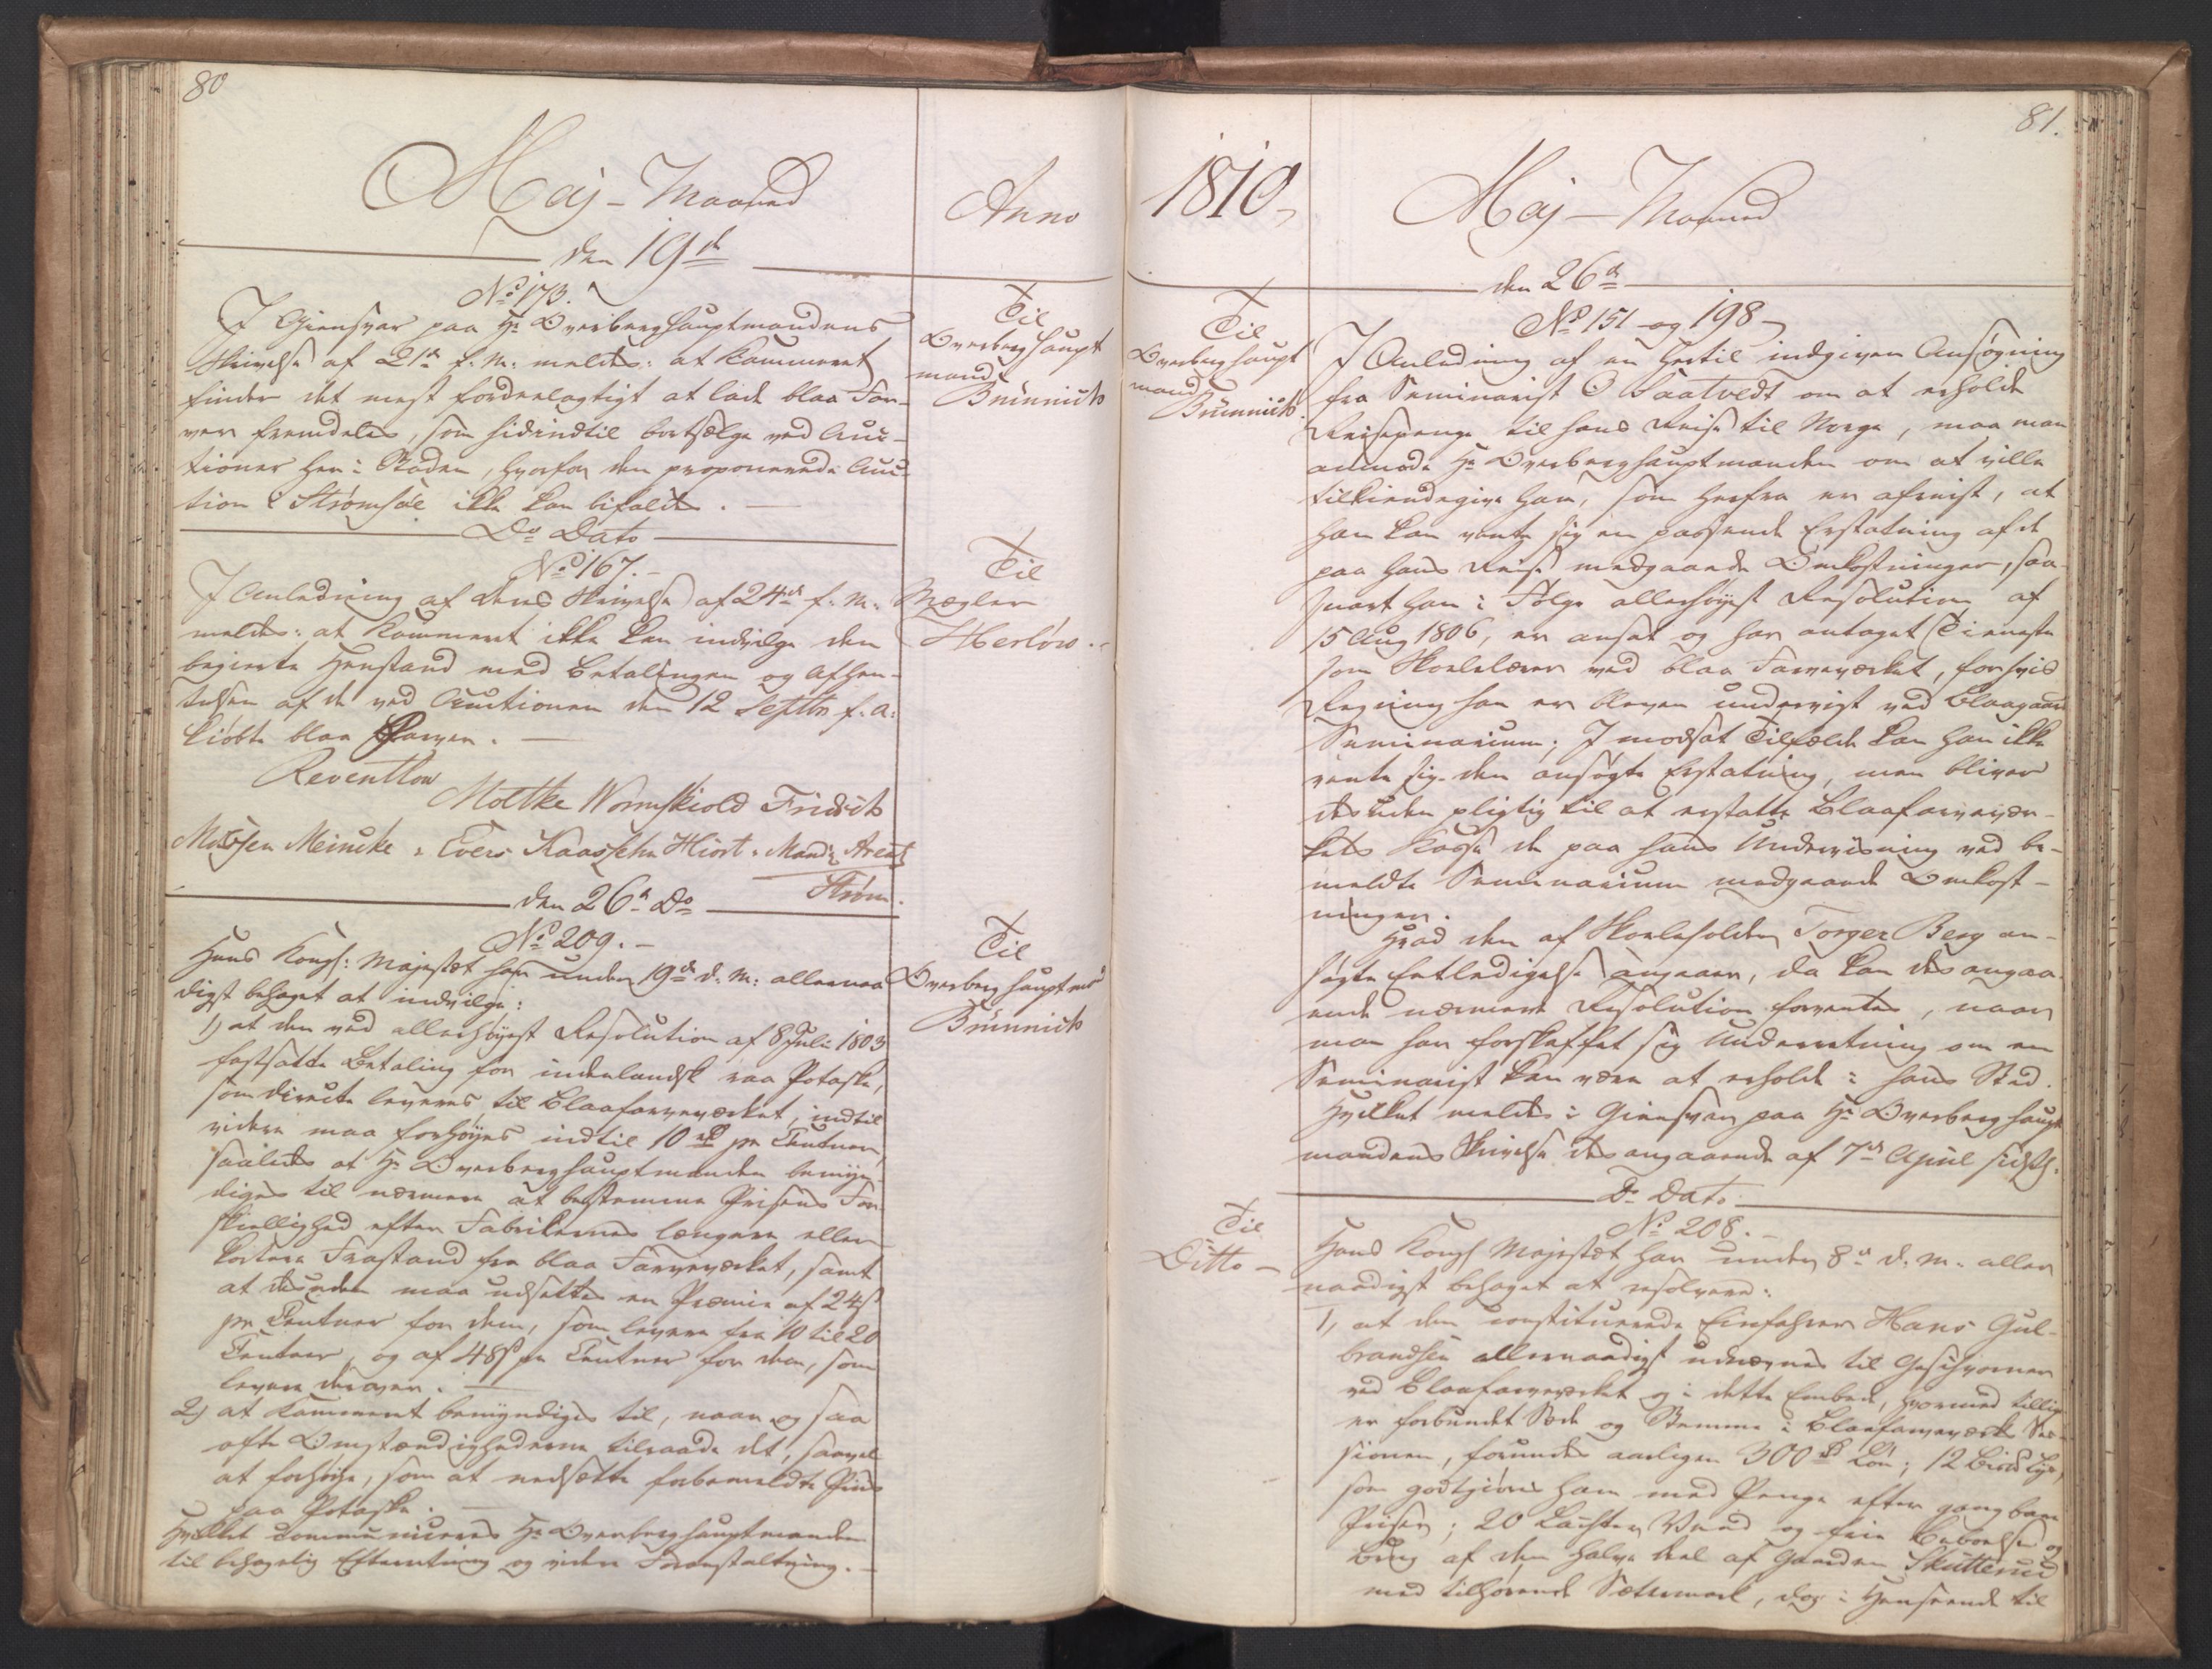 80
Maj - Maaned
Anno
den 19de
No 173.
Til
Overberghaupt
mand
Brünnich
I Giensvar paa Hr. Overberghauptmandens
Skrivelse af 21de f. M. meldes: at Kammeret
finder det mest fordeelagtigt at lade blaa Far-
ver fremdeles, som hidindtil bortsælge ved Auc-
tioner her i Staden, hvorfor den proponerede Auc-
tion i Strømsøe ikke kan bifaldes.
Do Dato
No 167.
Til
Mægler
Herlów.
I Anledning af deres Skrivelse af 24de f. M.
meldes: at Kammeret ikke kan indvilge den
begierte Henstand med Betalingen og Afhen-
telsen af de ved Auctionen den 12 Septbr f. A.
kiøbte blaa Farver.
Reventlow
Moltke Wormskiold Fridsch
Mossen Meincke. Evers Kaas Hiort. Mandix Arentz
Strøm.
den 26de Do
No 209.
Til
Overberghauptmd
Brünnich
Hans Kongl: Majestæt har under 19de d. M. allernaa
digst behaget at indvilge:
1) at den ved allerhøyest Resolution af 8 Juli 1803
fastsatte Betaling for indenlandsk raa Potaske,
som directe leveres til Blaafarveværket, indtil
videre maa forhøyes indtil 10 rd pr Centner,
saaledes at Hr. Overberghauptmanden bemyn-
diges til nærmere at bestemme Prisens For-
skiellighed efter Fabrikernes længere eller
kortere Frastand fra blaa Farveværket, samt
at desuden maa udsættes en Præmie af 24 s
pr Centner for dem, som levere fra 10 til 20
Centner, og af 48 s pr Centner for dem, som
levere derover.
2) at Kammeret bemyndiges til, naar og saa
ofte Omstændighederne tilraade det, saavel
at forhøye, som at nedsætte forbemeldte Priis
paa Potaske.
Hvilket communiceres Hr. Overberghauptmanden
til behagelig Efterretning og videre Foranstaltning.
81.
1810
Maj - Maaned
den 26de
No 151 og 198
Til
Overberghaupt
mand
Brünnich
I Anledning af en hertil indgiven Ansøgning
fra Seminarist O Saatvedt om at erholde
Reisepenge til hans Reise til Norge, maa man
anmode Hr. Overberghauptmanden om at ville
tilkiendegive ham, som herfra er afreist, at
han kan vente sig en passende Erstatning af de
paa hans Reise medgaaende Omkostninger, saa-
snart han i Følge allerhøyest Resolution af
15 Aug 1806, er ansat og har antaget Tieneste
som Skolelærer ved blaa Farveværket, for hvis
Regning han er bleven underviist ved Blaagaards
Seminarium; I modsat Tilfælde kan han ikke
vente sig den ansøgte Erstatning, men bliver
desuden pligtig til at erstatte Blaafarvevær-
kets Kasse de paa hans Underviisning ved be-
meldte Seminarium medgaaede Omkost-
ninger.
Hvad den af Skoleholder Torger Berg an-
søgte Entledigelse angaaer, da kan desangaa-
ende nærmere Resolution forventes, naar
man har forskaffet sig Underretning om en
Seminarist kan være at erholde i hans Sted.
Hvilket meldes i Giensvar paa Hr. Overberghaupt
mandens Skrivelse desangaaende af 7de April sidstl.
Do Dato
No 208.
Til
Ditto
Hans Kongl Majestæt har under 8de d. M. aller
naadigst behaget at resolvere:
1, at den constituerede Einfahrer Hans Gul-
brandsen allernaadigst udnævnes til Geschworner
ved Blaafarveværket og i dette Embede, hvormed tillige
er forbundet Sæde og Stemme i Blaafarveværks Ses-
sionen, forundes aarligen 300 rd Løn; 12 Lys,
som godtgiøres ham med Penge efter gangbare
Priser; 20 Lachter Veed og frie Beboelse og
Brug af den halve Deel af Gaarden Skutterud
med tilhørende Sætermark, dog i Henseende til